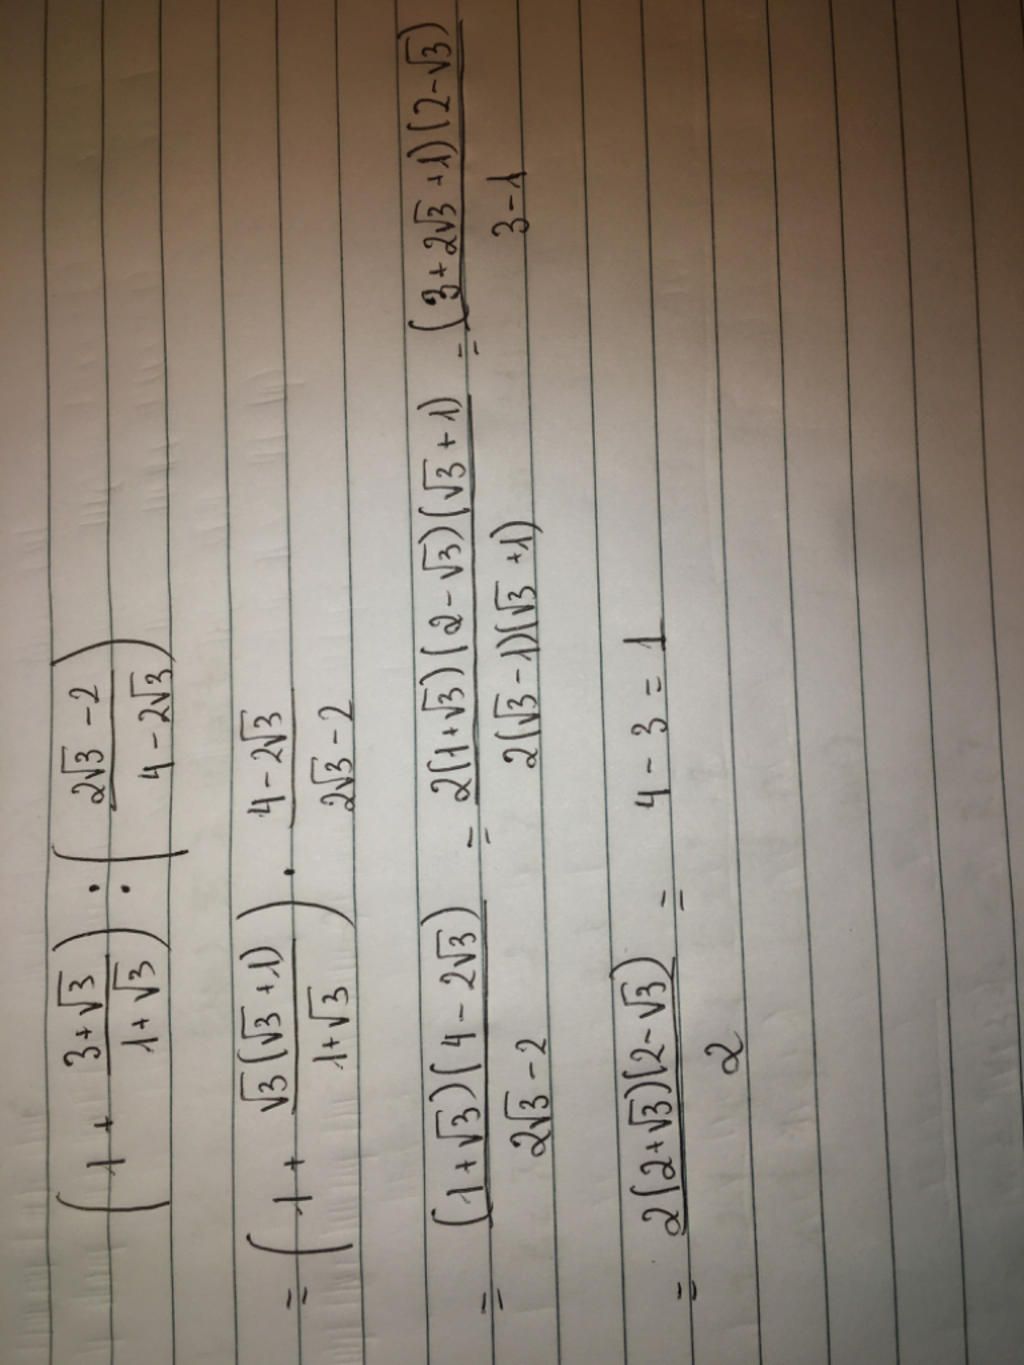 (1 + (3+√3)/(1+√3)) : ((2√3-2)/(4-2√3))
= (1 + (√3(√3+1))/(1+√3)) · (4-2√3)/(2√3-2)
= ((1+√3)(4-2√3))/(2√3-2) = (2(1+√3)(2-√3)(√3+1))/(2(√3-1)(√3+1)) = ((3+2√3+1)(2-√3))/(3-1)
= (2(2+√3)(2-√3))/2 = 4-3=1